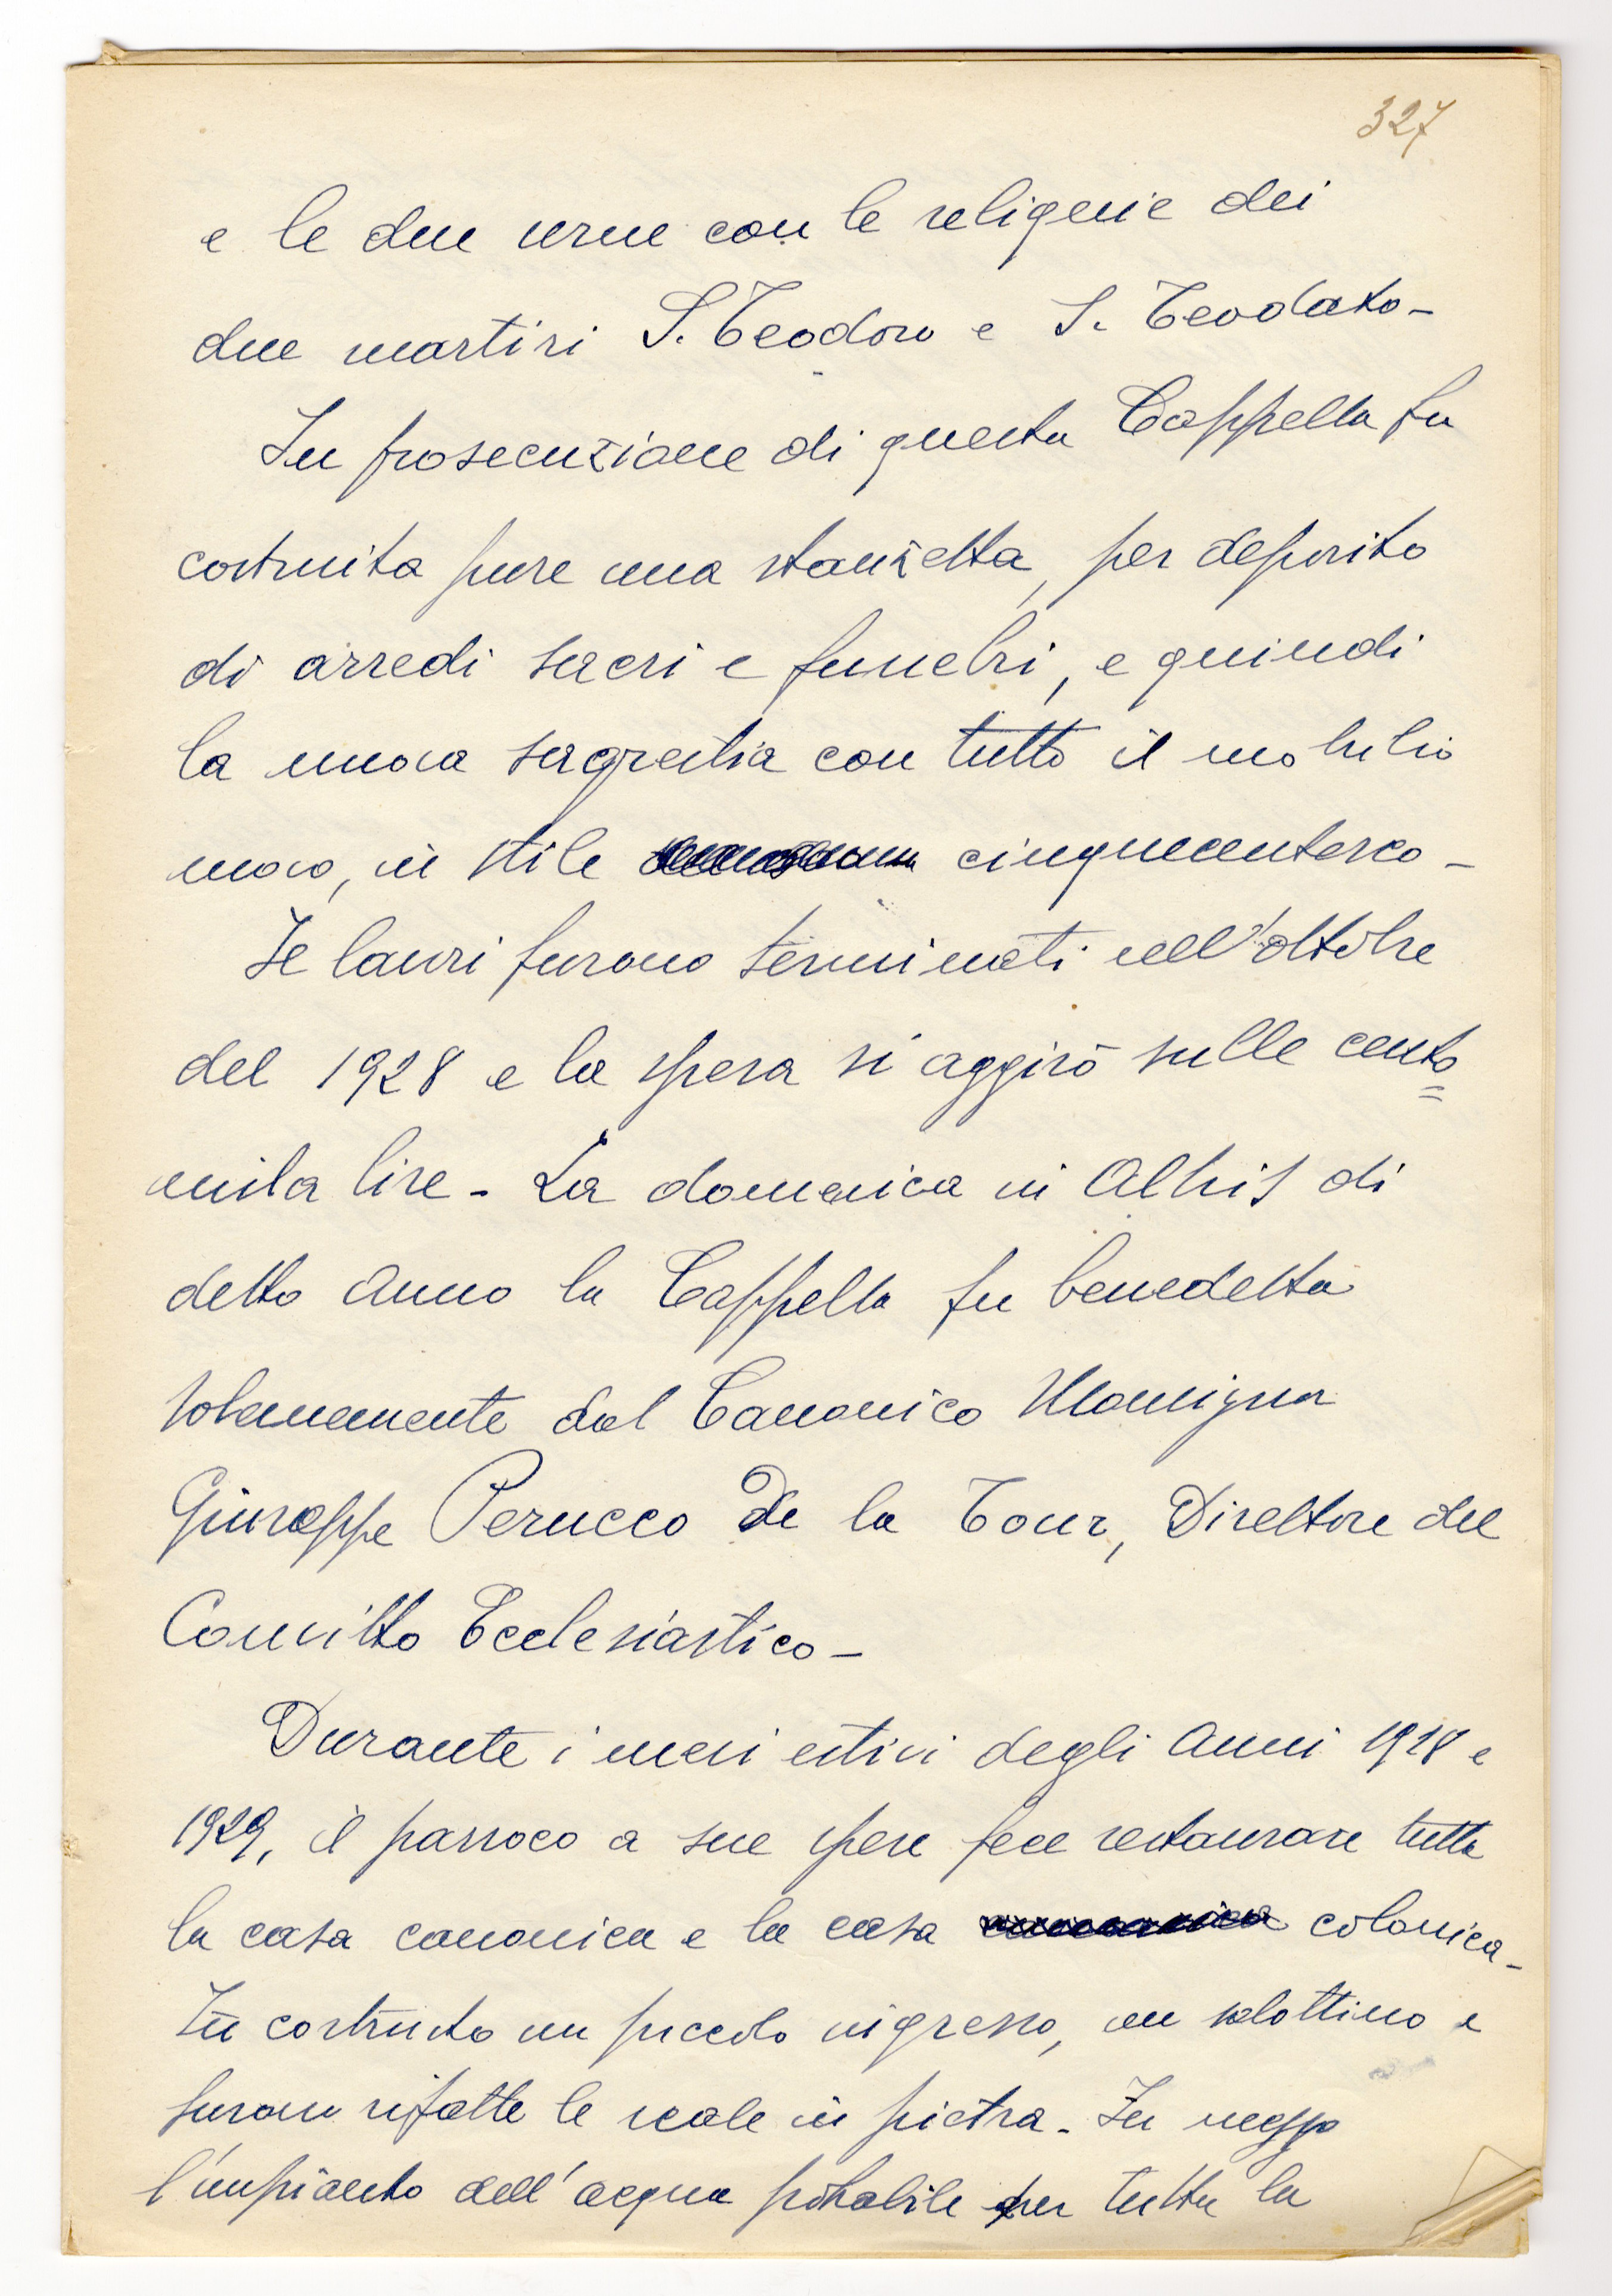 327
e le due urne con le reliquie dei
due martiri S. Teodoro e S. Teodato -
In prosecuzione di questa Cappella fu
costruita pure una stanzetta, per deposito
di arredi sacri e funebri, e quindi
la nuova sagrestia con tutto il mobilio
nuovo, in stile cinquecentesco -
I lavori furono terminati nell'ottobre
del 1928 e la spesa si aggirò sulle cento=
mila lire - La domenica in Albis di
detto anno la Cappella fu benedetta
solennemente dal Canonico Monsignor
Giuseppe Perucco De la Tour, Direttore del
Convitto Ecclesiastico -
Durante i mesi estivi degli anni 1928 e
1929, il parroco a sue spese fece restaurare tutta
la casa canonica e la casa colonica -
Fu costruito un piccolo ingresso, un salottino e
furono rifatte le scale in pietra - Fu messo
l'impianto dell'acqua potabile per tutta la